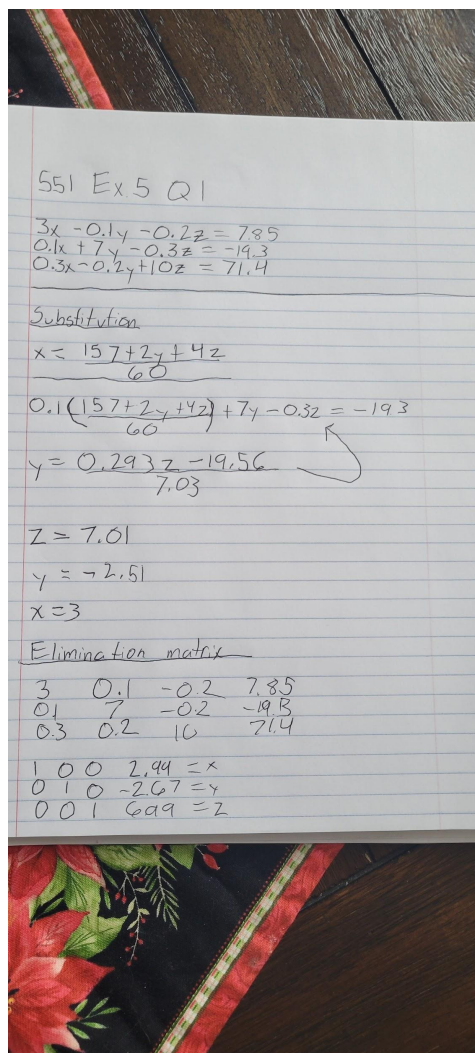 551 Ex.5 Q1
3x - 0.1y - 0.2z = 7.85
0.1x + 7y - 0.3z = -19.3
0.3x - 0.2y + 10z = 71.4
Substitution
x = 157 + 2y + 4z
60
0.1(157 + 2y + 4z) + 7y - 0.3z = -19.3
60
y = 0.293z - 19.56
7.03
z = 7.01
y = -2.51
x = 3
Elimination matrix
3 0.1 -0.2 7.85
0.1 7 -0.2 -19.3
0.3 0.2 10 71.4
1 0 0 2.99 = x
0 1 0 -2.67 = y
0 0 1 6.99 = z